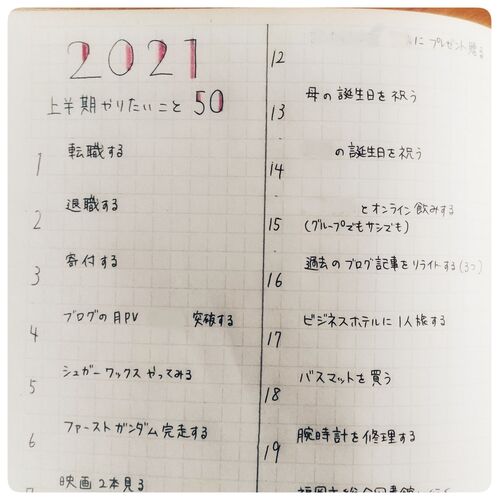 2021
上半期やりたいこと 50
1 転職する
2 退職する
3 寄付する
4 ブログの月PV 突破する
5 シュガーワックスやってみる
6 ファーストガンダム完走する
7 映画2本見る
12 にプレゼント贈る
13 母の誕生日を祝う
14 の誕生日を祝う
15 とオンライン飲みする
(グループでもサシでも)
16 過去のブログ記事をリライトする(3つ)
17 ビジネスホテルに1人旅する
18 バスマットを買う
19 腕時計を修理する